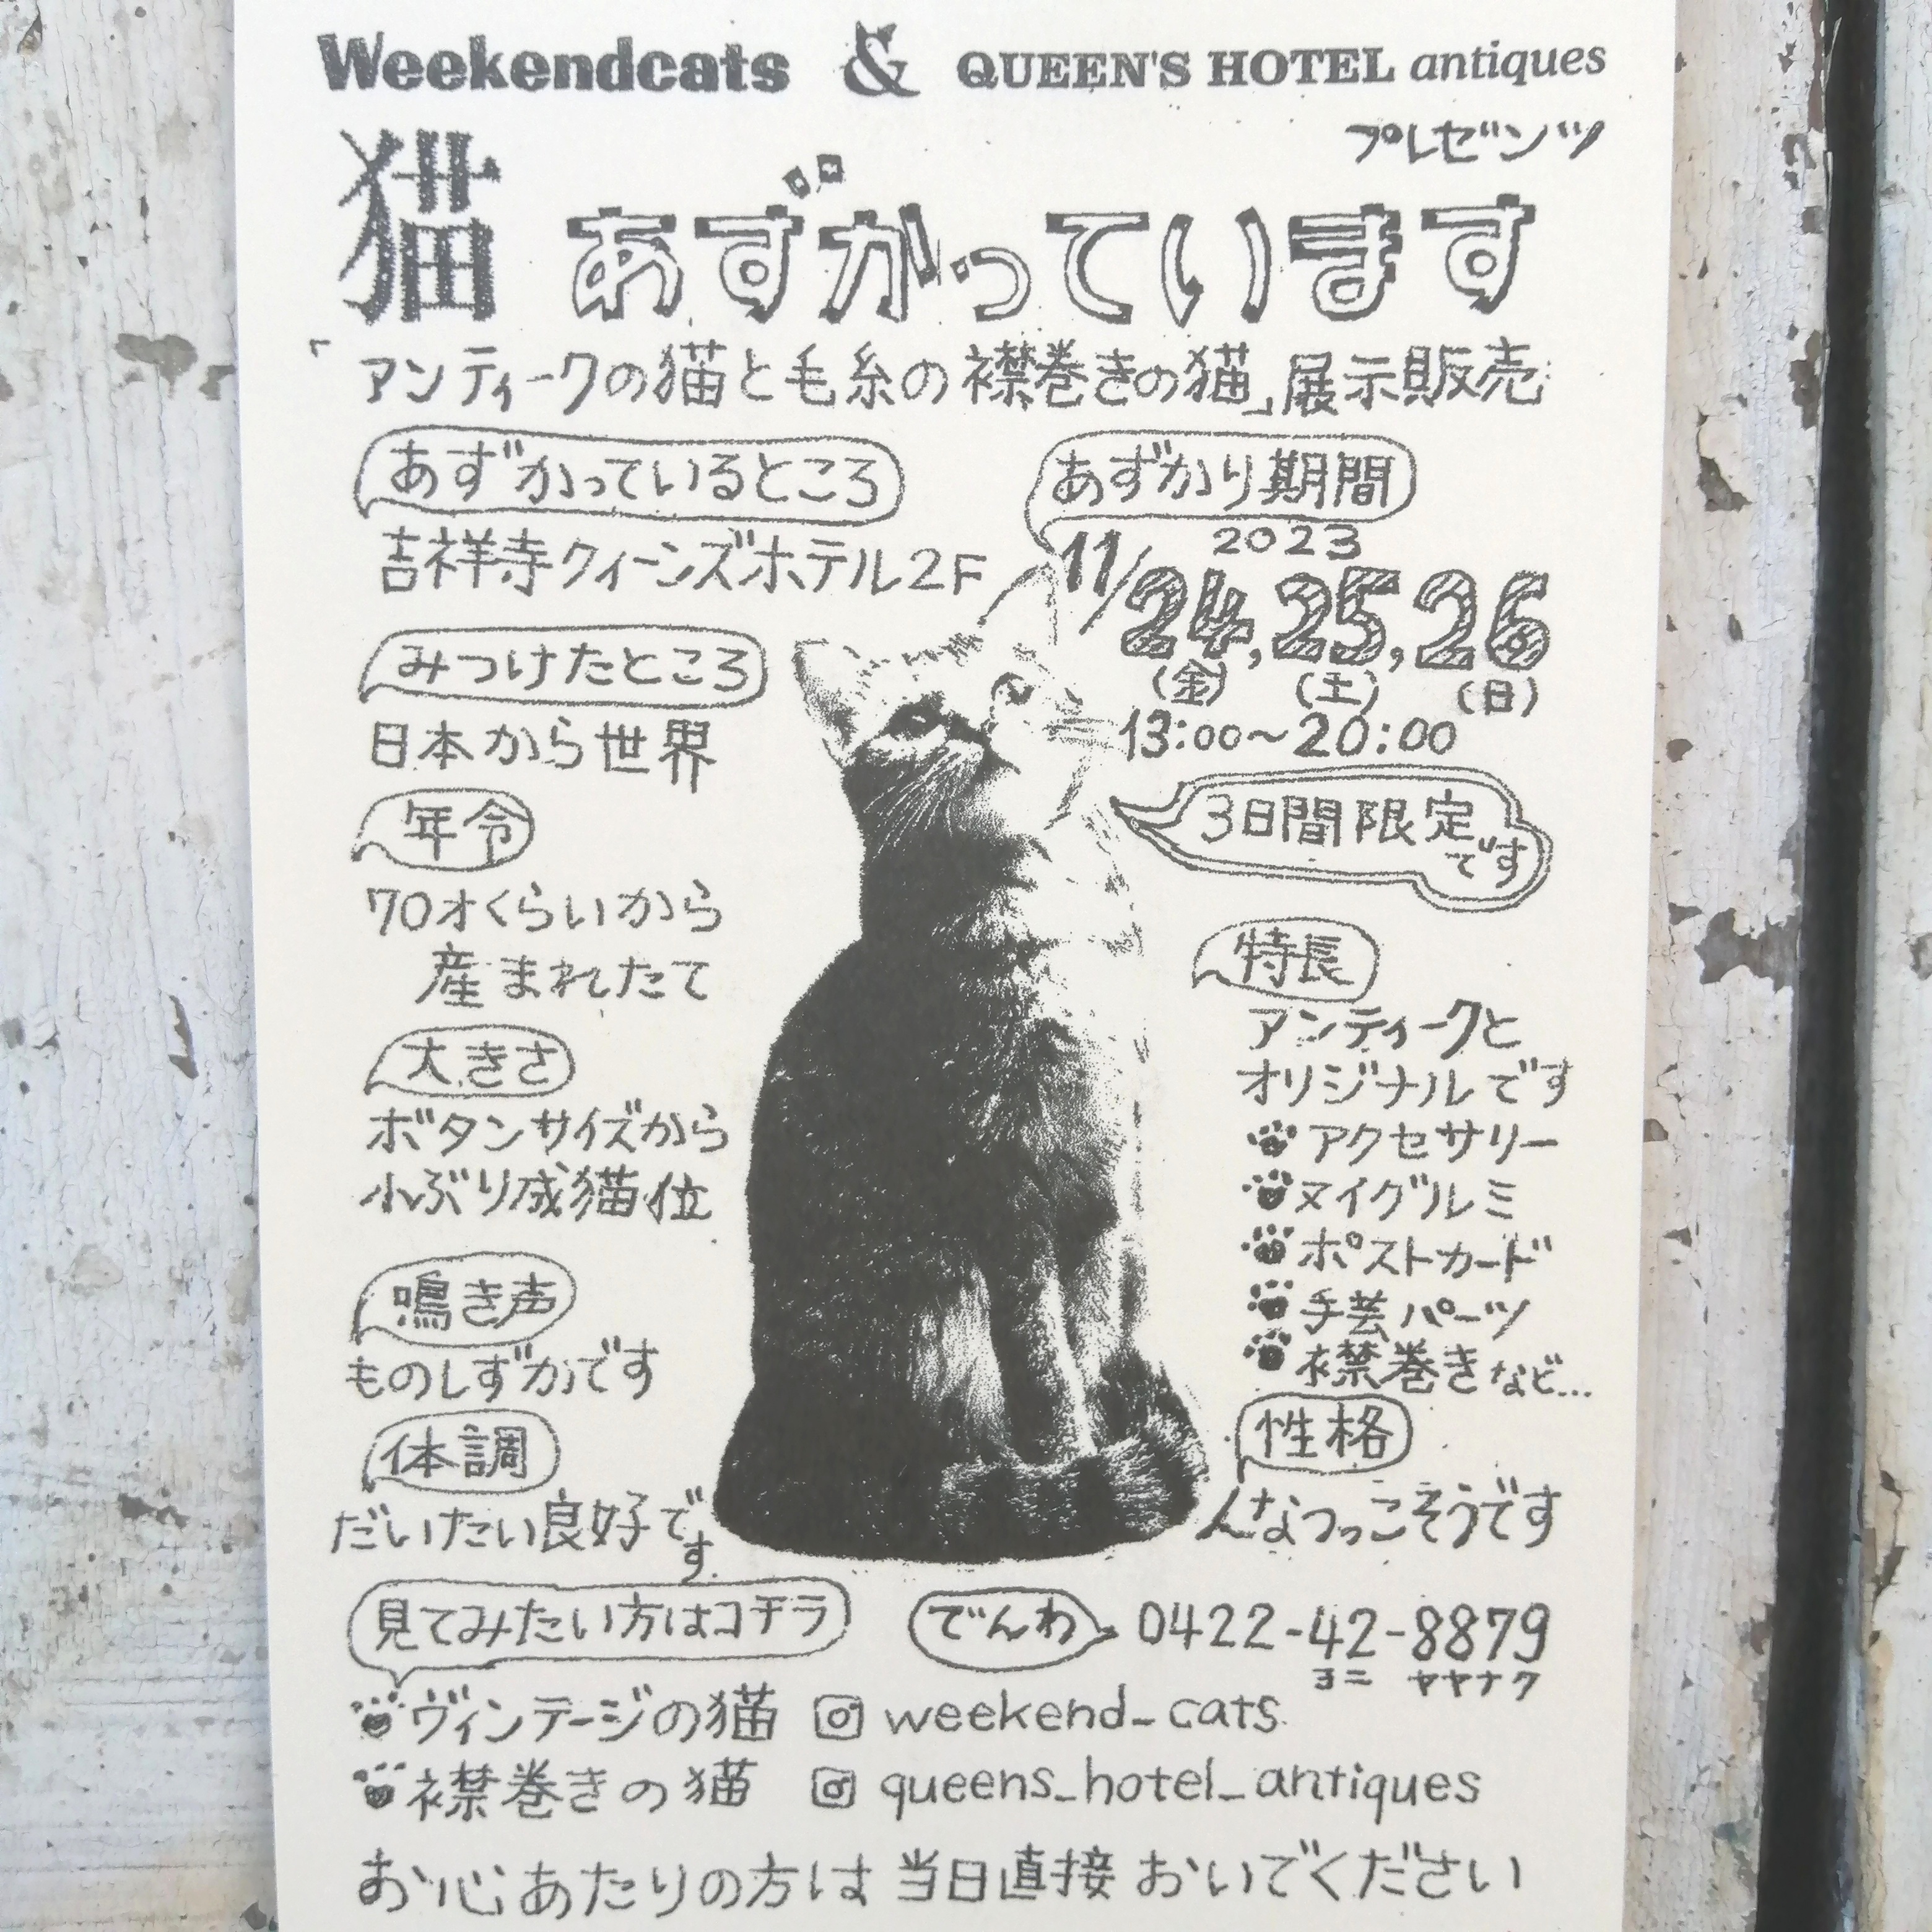 Weekendcats & QUEEN'S HOTEL antiques
プレゼンツ
猫 あずかっています
「アンティークの猫と毛糸の襟巻きの猫」展示販売
あずかっているところ
吉祥寺クィーンズホテル2F
あずかり期間
2023
11/24,25,26
(金) (土) (日)
13:00～20:00
3日間限定
です
みつけたところ
日本から世界
年令
70才くらいから
産まれたて
大きさ
ボタンサイズから
小ぶり成猫位
鳴き声
ものしずかです
体調
だいたい良好です
特長
アンティークと
オリジナルです
アクセサリー
ヌイグルミ
ポストカード
手芸パーツ
襟巻きなど...
性格
人なつっこそうです
見てみたい方はコチラ
でんわ 0422-42-8879
ヨニ ヤヤナク
ヴィンテージの猫 weekend_cats
襟巻きの猫 queens_hotel_antiques
お心あたりの方は当日直接おいでください